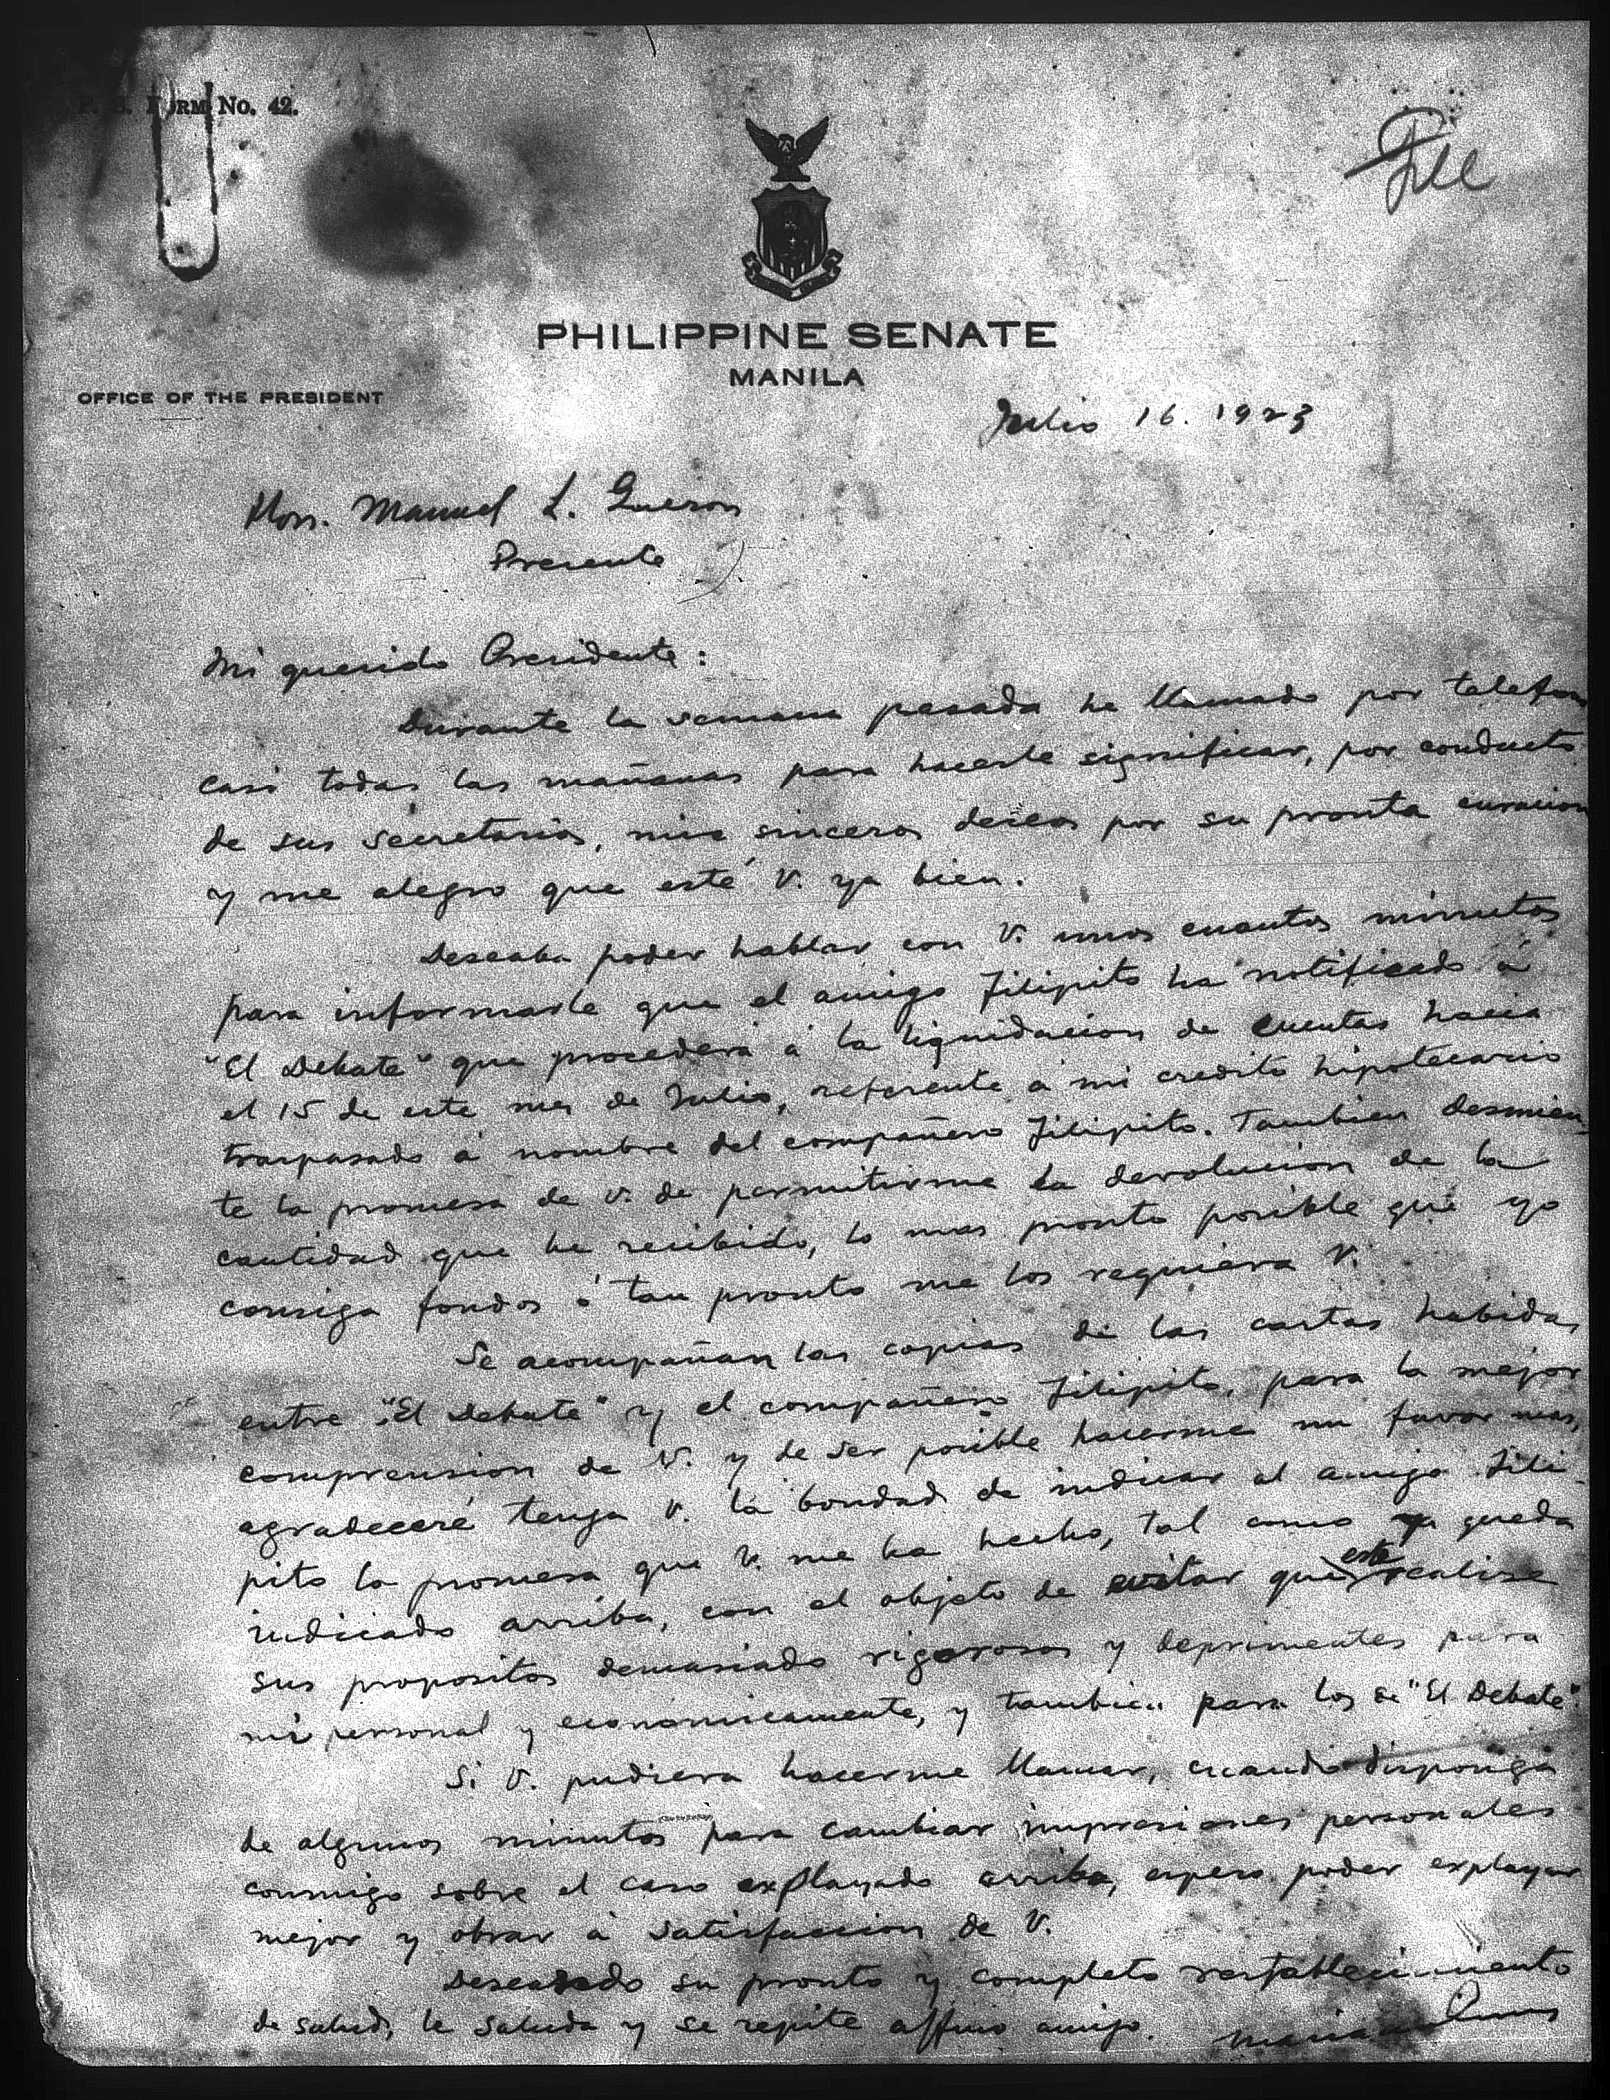 FORM No. 42.
File
PHILIPPINE SENATE
MANILA
OFFICE OF THE PRESIDENT
Julio 16. 1923
Hon. Manuel L. Quezon
Presente
Mi querido Presidente:
Durante la semana pasada he llamado por telefon
casi todas las mañanas para hacerle significar, por conducto
de sus secretarios, mis sinceros deseos por su pronta curacion
y me alegro que esté V. ya bien.
Deseaba poder hablar con V. unos cuantos minutos
para informarle que el amigo Filipito ha notificado á
"El Debate" que procederá á la liquidacion de cuentas hacia
el 15 de este mes de Julio, referente á mi credito hipotecario
traspasado á nombre del compañero Filipito. Tambien desmien-
te la promesa de V. de permitirme la devolucion de la
cantidad que he recibido, lo mas pronto posible que yo
consiga fondos ó tan pronto me los requiera V.
Se acompañan las copias de las cartas habidas
entre "El Debate" y el compañero Filipito, para la mejor
comprension de V. y de ser posible hacerme un favor mas,
agradeceré tenga V. la bondad de indicar al amigo Fili-
pito la promesa que V. me ha hecho, tal como ya queda
indicado arriba, con el objeto de evitar que este realize
sus propositos demasiado rigorosos y deprimentes para
mi personal y economicamente, y tambien para los de "El Debate".
Si V. pudiera hacerme llamar, cuando disponga
de algunos minutos para cambiar impresiones personales
conmigo sobre el caso explayado arriba, espero poder explayar
mejor y obrar á satisfaccion de V.
Deseando su pronto y completo restablecimiento
de salud, le saluda y se repite affmo amigo.